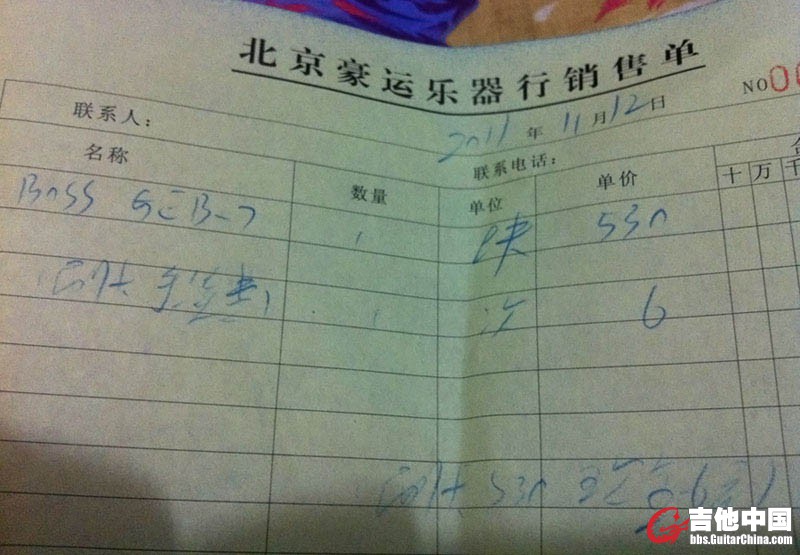 北京豪运乐器行销售单
NO00
联系人：
2011年11月12日
联系电话：
名称 数量 单位 单价
十 万 千
BOSS GEB-7 1 块 530
1 次 6
530
吉他中国
bbs.GuitarChina.com